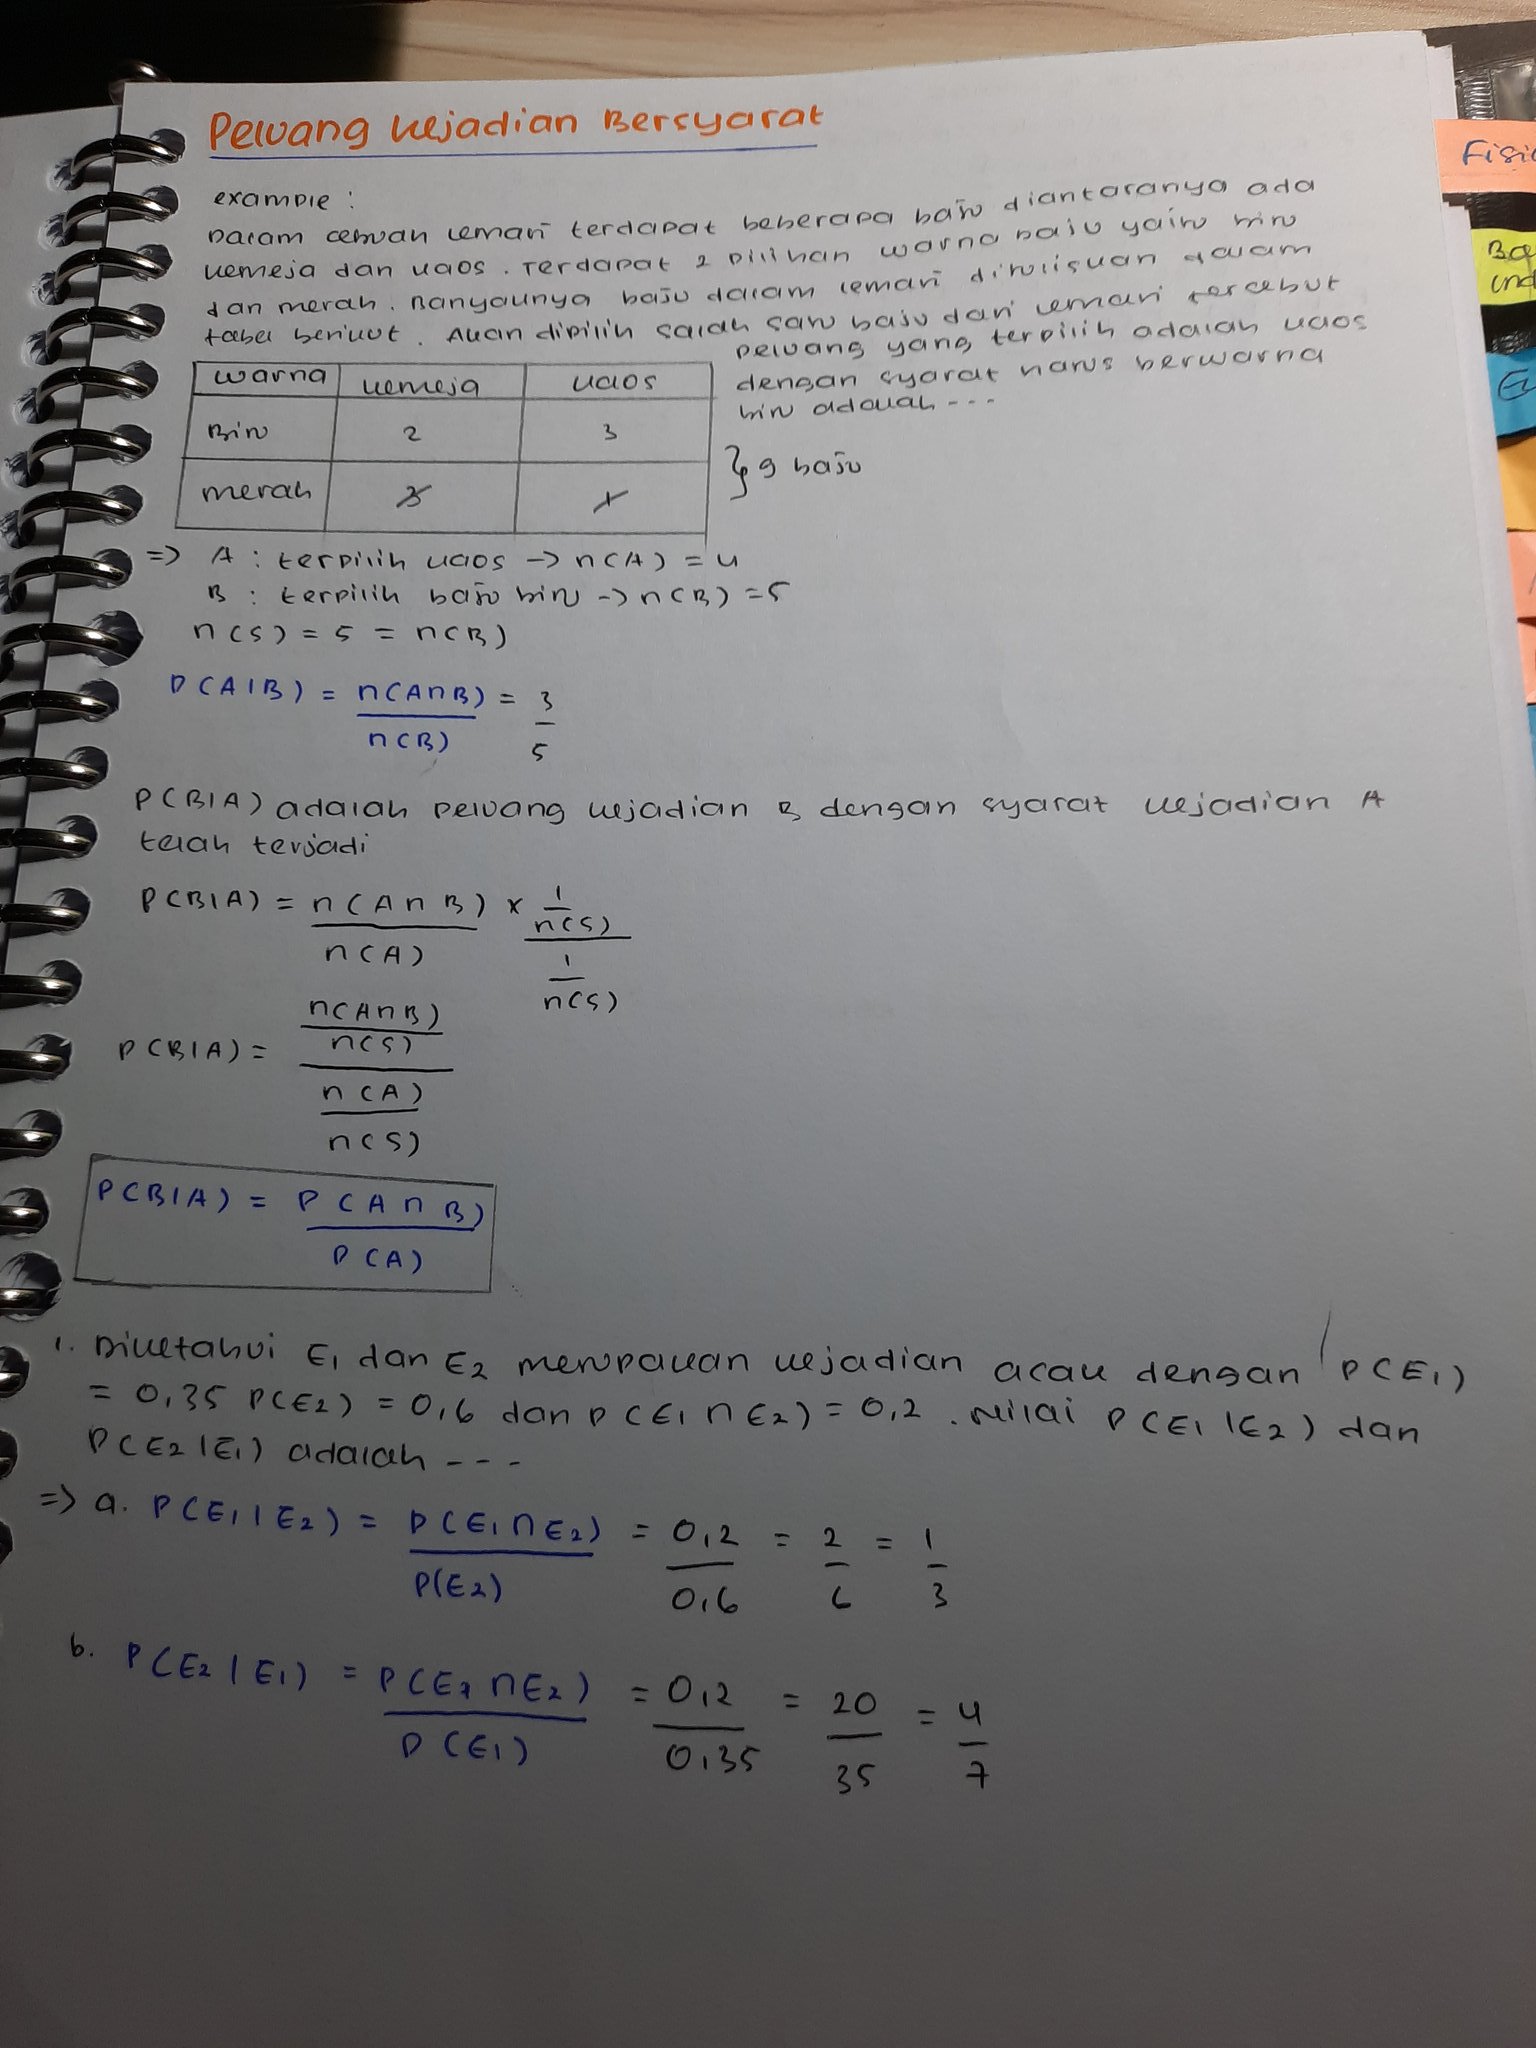 Peluang kejadian Bersyarat
example :
Dalam sebuah lemari terdapat beberapa baju diantaranya ada
kemeja dan kaos. Terdapat 2 pilihan warna baju yaitu biru
dan merah. Banyaknya baju dalam lemari dituliskan dalam
tabel berikut. Akan dipilih salah satu baju dari lemari tersebut
peluang yang terpilih adalah kaos
dengan syarat harus berwarna
biru adalah ---
warna kemeja kaos
Biru 2 3
merah 3 1
} 9 baju
=> A : terpilih kaos -> n(A) = 4
B : terpilih baju biru -> n(B) = 5
n(S) = 5 = n(B)
P(A|B) = n(A∩B) / n(B) = 3/5
P(B|A) adalah peluang kejadian B dengan syarat kejadian A
telah terjadi
P(B|A) = n(A∩B) / n(A) × 1/n(S) / 1/n(S)
P(B|A) = n(A∩B)/n(S) / n(A)/n(S)
P(B|A) = P(A∩B) / P(A)
1. Diketahui E1 dan E2 merupakan kejadian acak dengan P(E1)
= 0,35 P(E2) = 0,6 dan P(E1∩E2) = 0,2. Nilai P(E1|E2) dan
P(E2|E1) adalah ---
=> a. P(E1|E2) = P(E1∩E2) / P(E2) = 0,2/0,6 = 2/6 = 1/3
b. P(E2|E1) = P(E1∩E2) / P(E1) = 0,2/0,35 = 20/35 = 4/7